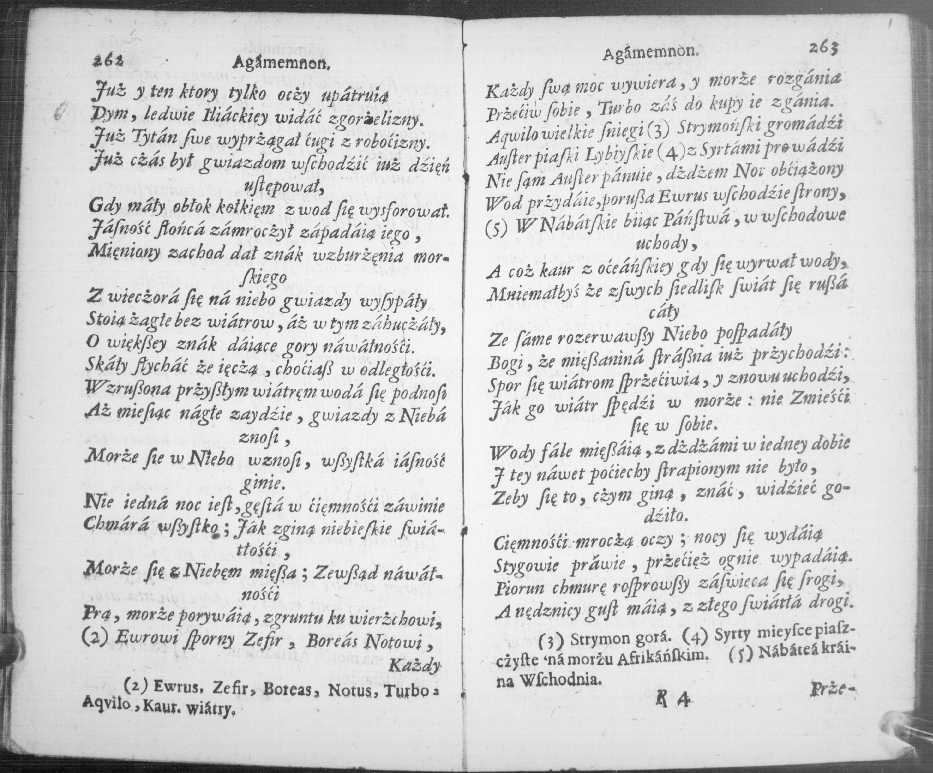 262 Agámemnon.
Już y ten ktory tylko oczy upátruią
Dym, ledwie Iliáckiey widáć zgorzelizny.
Już Tytán ſwe wyprżągał ćugi z roboćizny.
Już cżás był gwiazdom wſchodźić iuż dźięń
uſtępował,
Gdy máły obłok kołkięm z wod ſię wysforował.
Jáſność ſłońcá zámrocżył západáią iego,
Mięniony zachod dał znák wzburżęnia mor-
ſkiego
Z wiecżorá ſię ná niebo gwiazdy wyſypáły
Stoią żagle bez wiátrow, áż w tym záhucżáły,
O więkſzey znák dáiące gory náwáłnośći.
Skáły ſłycháć że ięcżą, choćiaſz w odległośći.
Wzruſzona przyſzłym wiátręm wodá ſię podnoſi
Aż mieſiąc nágłe zaydźie, gwiazdy z Niebá
znoſi,
Morże ſie w Niebo wznoſi, wſzyſtká iáſność
ginie.
Nie iedná noc ieſt, gęſtá w ćięmnośći záwinie
Chmárá wſzyſtko; Ják zginą niebieſkie ſwiá-
tłośći,
Morże ſię z Niebęm mięſza; Zewſząd náwáł-
nośći
Prą, morże porywáią, zgruntu ku wierżchowi,
(2) Ewrowi ſporny Zefir, Boreás Notowi,
Każdy
(2) Ewrus, Zefir, Boreas, Notus, Turbo,
Aqvilo, Kaur. wiátry.
Agámemnon. 263
Każdy ſwą moc wywiera, y morże rozgánia
Przećiw ſobie, Turbo záś do kupy ie zgánia.
Aqwilo wielkie ſniegi (3) Strymońſki gromádźi
Auſter piaſki Lybiyſkie (4) z Syrtámi prowádźi
Nie ſąm Auſter pánuie, dżdżem Noc obćiążony
Wod przydáie, poruſza Ewrus wſchodźie ſtrony,
(5) W Nábátſkie biiąc Páńſtwá, w wſchodowe
uchody,
A coż kaur z oćeáńſkiey gdy ſię wyrwał wody,
Mniemałbyś że zſwych ſiedliſk ſwiát ſię ruſzá
cáły
Ze ſáme rozerwawſzy Niebo poſpadáły
Bogi, że mięſzaniná ſtráſzna iuż przychodźi:
Spor ſię wiátrom ſprzećiwia, y znowu uchodźi,
Ják go wiátr ſpędźi w morże: nie Zmieśći
ſię w ſobie.
Wody fále mięſzáią, z dżdżámi w iedney dobie
J tey náwet poćiechy ſtrapionym nie było,
Zeby ſię to, cżym giną, znáć, widźieć go-
dźiło.
Cięmnośći mrocżą oczy; nocy ſię wydáią
Stygowie práwie, przećięż ognie wypadáią.
Piorun chmurę roſprowſzy záświeca ſię ſrogi,
A nędznicy guſt máią, z złego ſwiátłá drogi.
(3) Strymon gorá. (4) Syrty mieyſce piaſz-
cżyſte ná morżu Afrikáńſkim. (5) Nábáteá krái-
na Wſchodnia.
R 4 Prże-